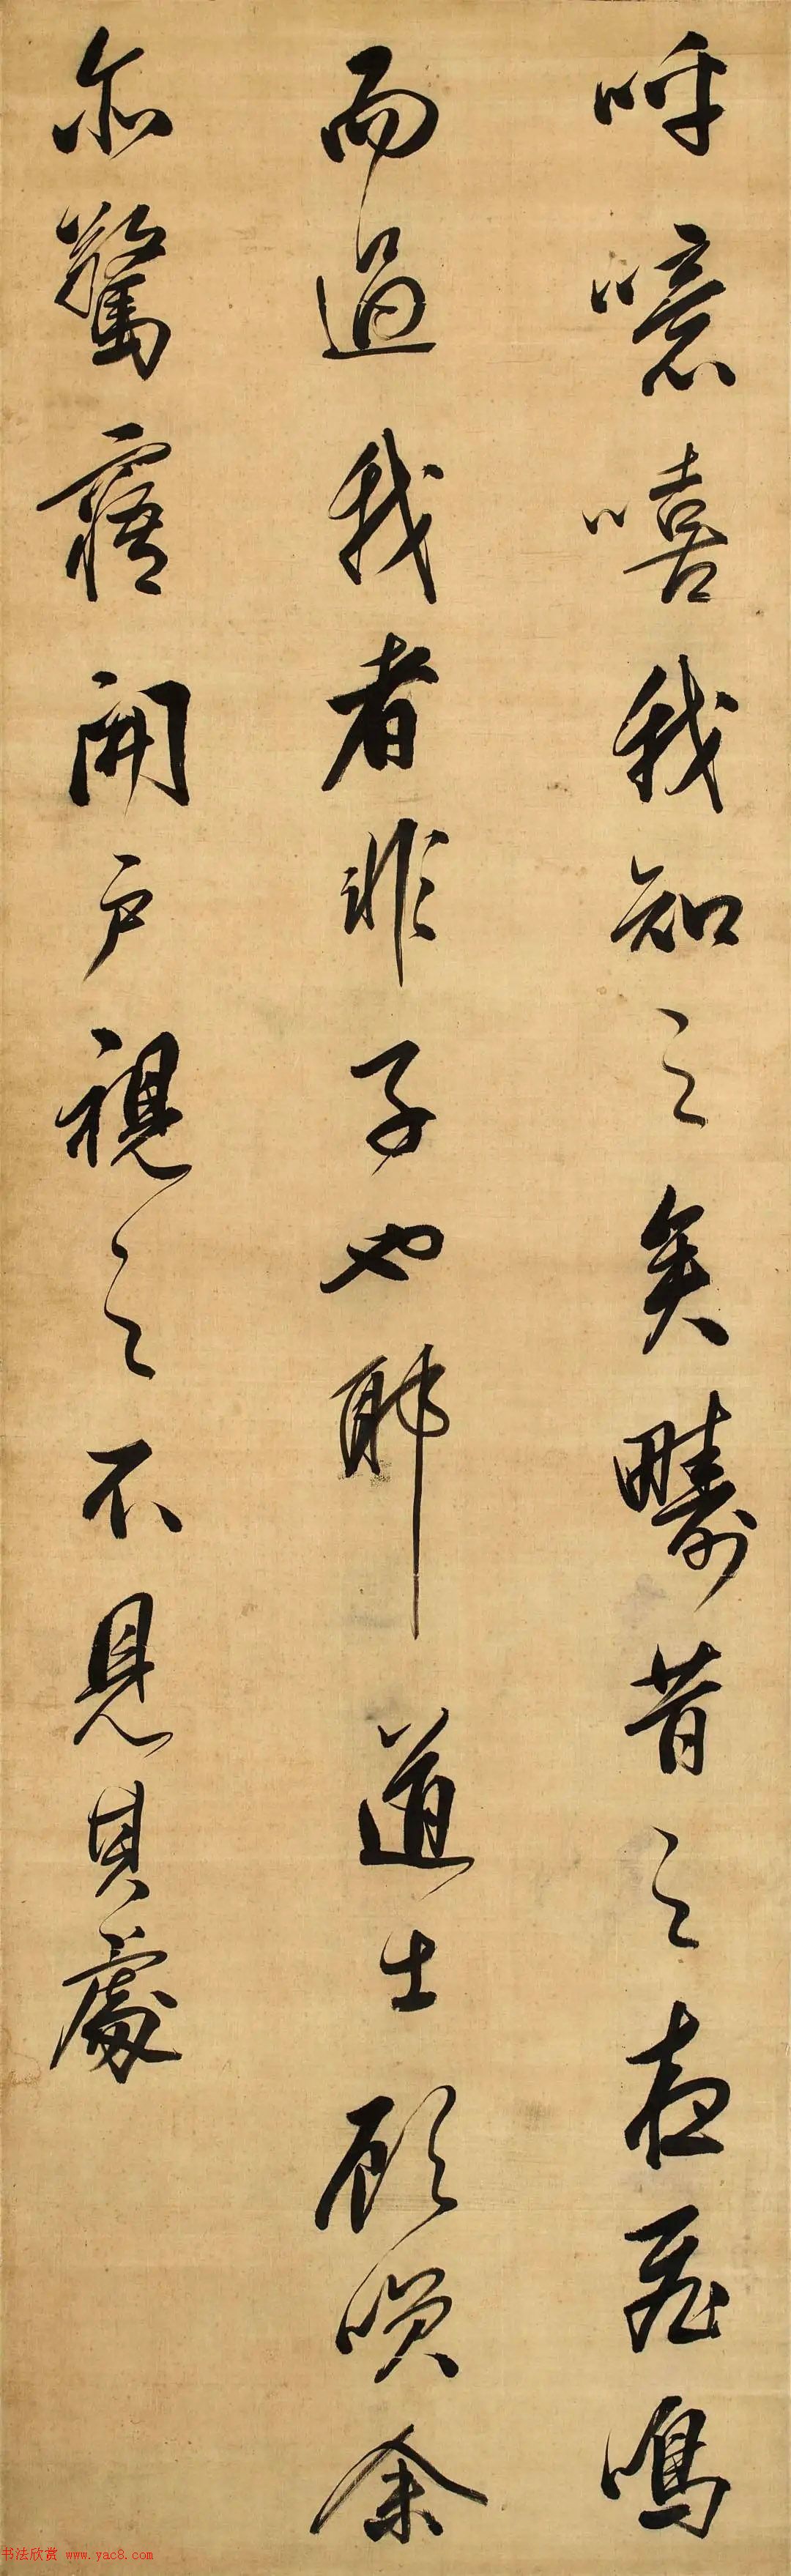 呼噫嘻我知之矣疇昔之夜飛鳴
而過我者非子也耶道士顧唉余
亦驚寤開户視之不見其處
书法欣赏 www.yac8.com